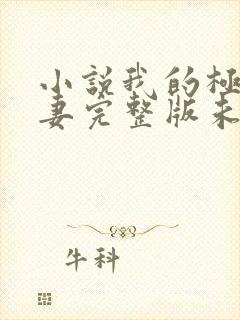 小説我的極
妻完整版未
牛科